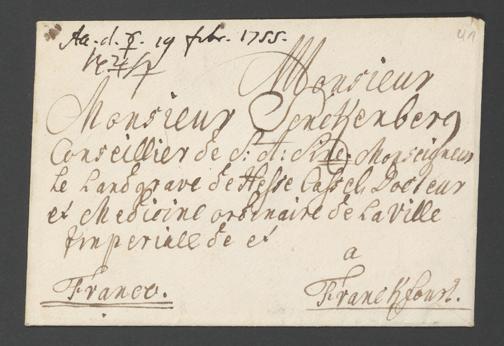 Aa. d. ☿. 19 febr. 1755.
41
Monsieur
Monsieur Senckenberg
Conseillier de S: A: S: Monseigneur
Le Landgrave de Hesse Cassel, Docteur
et Medicine ordinaire de La Ville
Imperialle de et
a
Franco.
Franckfourt.